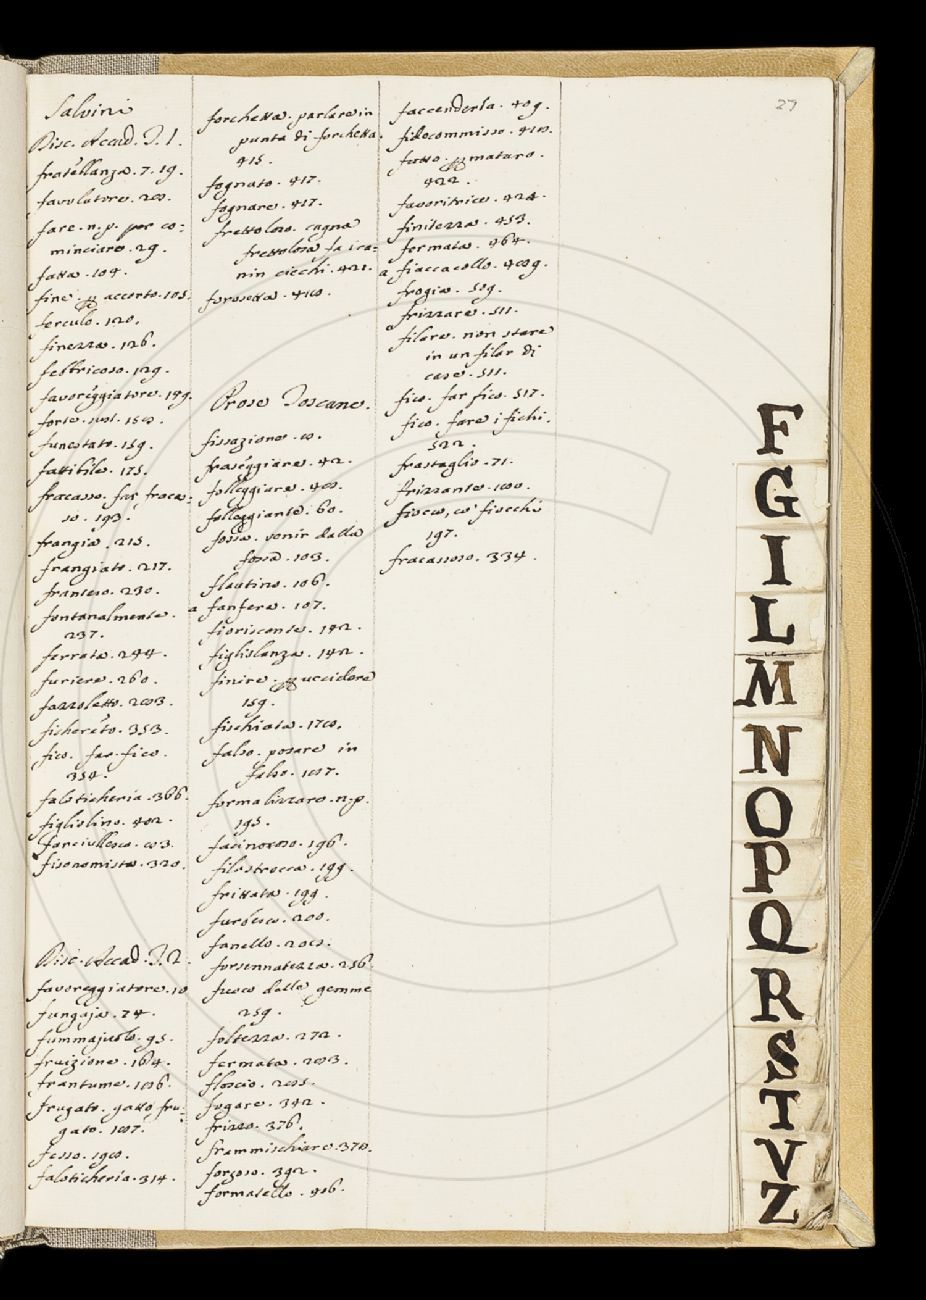 27
Salvini
Disc. Accad. T. 1.
fratellanza. 7. 19.
favolatore.
fare. n. p. per co=
minciare. 29.
fatta. 104.
fine. accorto. 105.
ferculo. 120.
finezza. 126.
febbricoso. 129.
favoreggiatore. 149.
forte. sust.
funestato. 159.
fattibile. 175.
fracasso. far fraca=
so. 193.
frangia. 215.
frangiato. 217.
franteso. 230.
fontanalmente.
237.
ferrata. 244.
furiere. 260.
fazzoletto.
ficheréto. 353.
fico. far fico.
354.
faloticheria. 366.
figliolino. 402.
fanciullesco.
fisonomista. 320.
Disc. Accad. T. 2.
favoreggiatore. 10
fungaja. 74.
fummajuolo. 95.
fruizione. 164.
frantume.
frugato. gatto fru=
gato.
fesso.
faloticheria. 314.
forchetta. parlare in
punta di forchetta.
415.
fognato. 417.
fognare. 417.
frettoloso. cagna
frettolosa fa i ca=
nin ciechi. 421.
forosetta.
Prose Toscane.
fissazione.
fraseggiare. 42.
folleggiare.
folleggiante. 60.
fossa. venir dalla
fossa. 103.
flautino. 106.
a fanfera. 107.
fioriscente. 142.
figliolanza. 142.
finire. uccidere
159.
fischiata.
falso. posare in
falso.
formalizzare. n. p.
195.
facinoroso. 196.
filastrocca. 199.
frittata. 199.
furbesco. 200.
fanello.
forsennatezza. 256.
fuoco delle gemme
259.
foltezza. 272.
fermata.
floscio.
fogare. 342.
frizzo. 376.
frammischiare. 370.
forzoso. 392.
formatello.
faccenderia. 409.
fidecommisso.
fatto. maturo.
422.
favoritrice. 424.
finitezza. 453.
fermata. 464.
a fiaccacollo.
frogia. 509.
frizzare. 511.
filare. non stare
in un filar di
case. 511.
fico. far fico. 517.
fico. fare i fichi.
522.
frastaglio. 71.
frizzante.
fiocco, co' fiocchi
197.
fracassoso. 334.
F
G
I
L
M
N
O
P
Q
R
S
T
V
Z